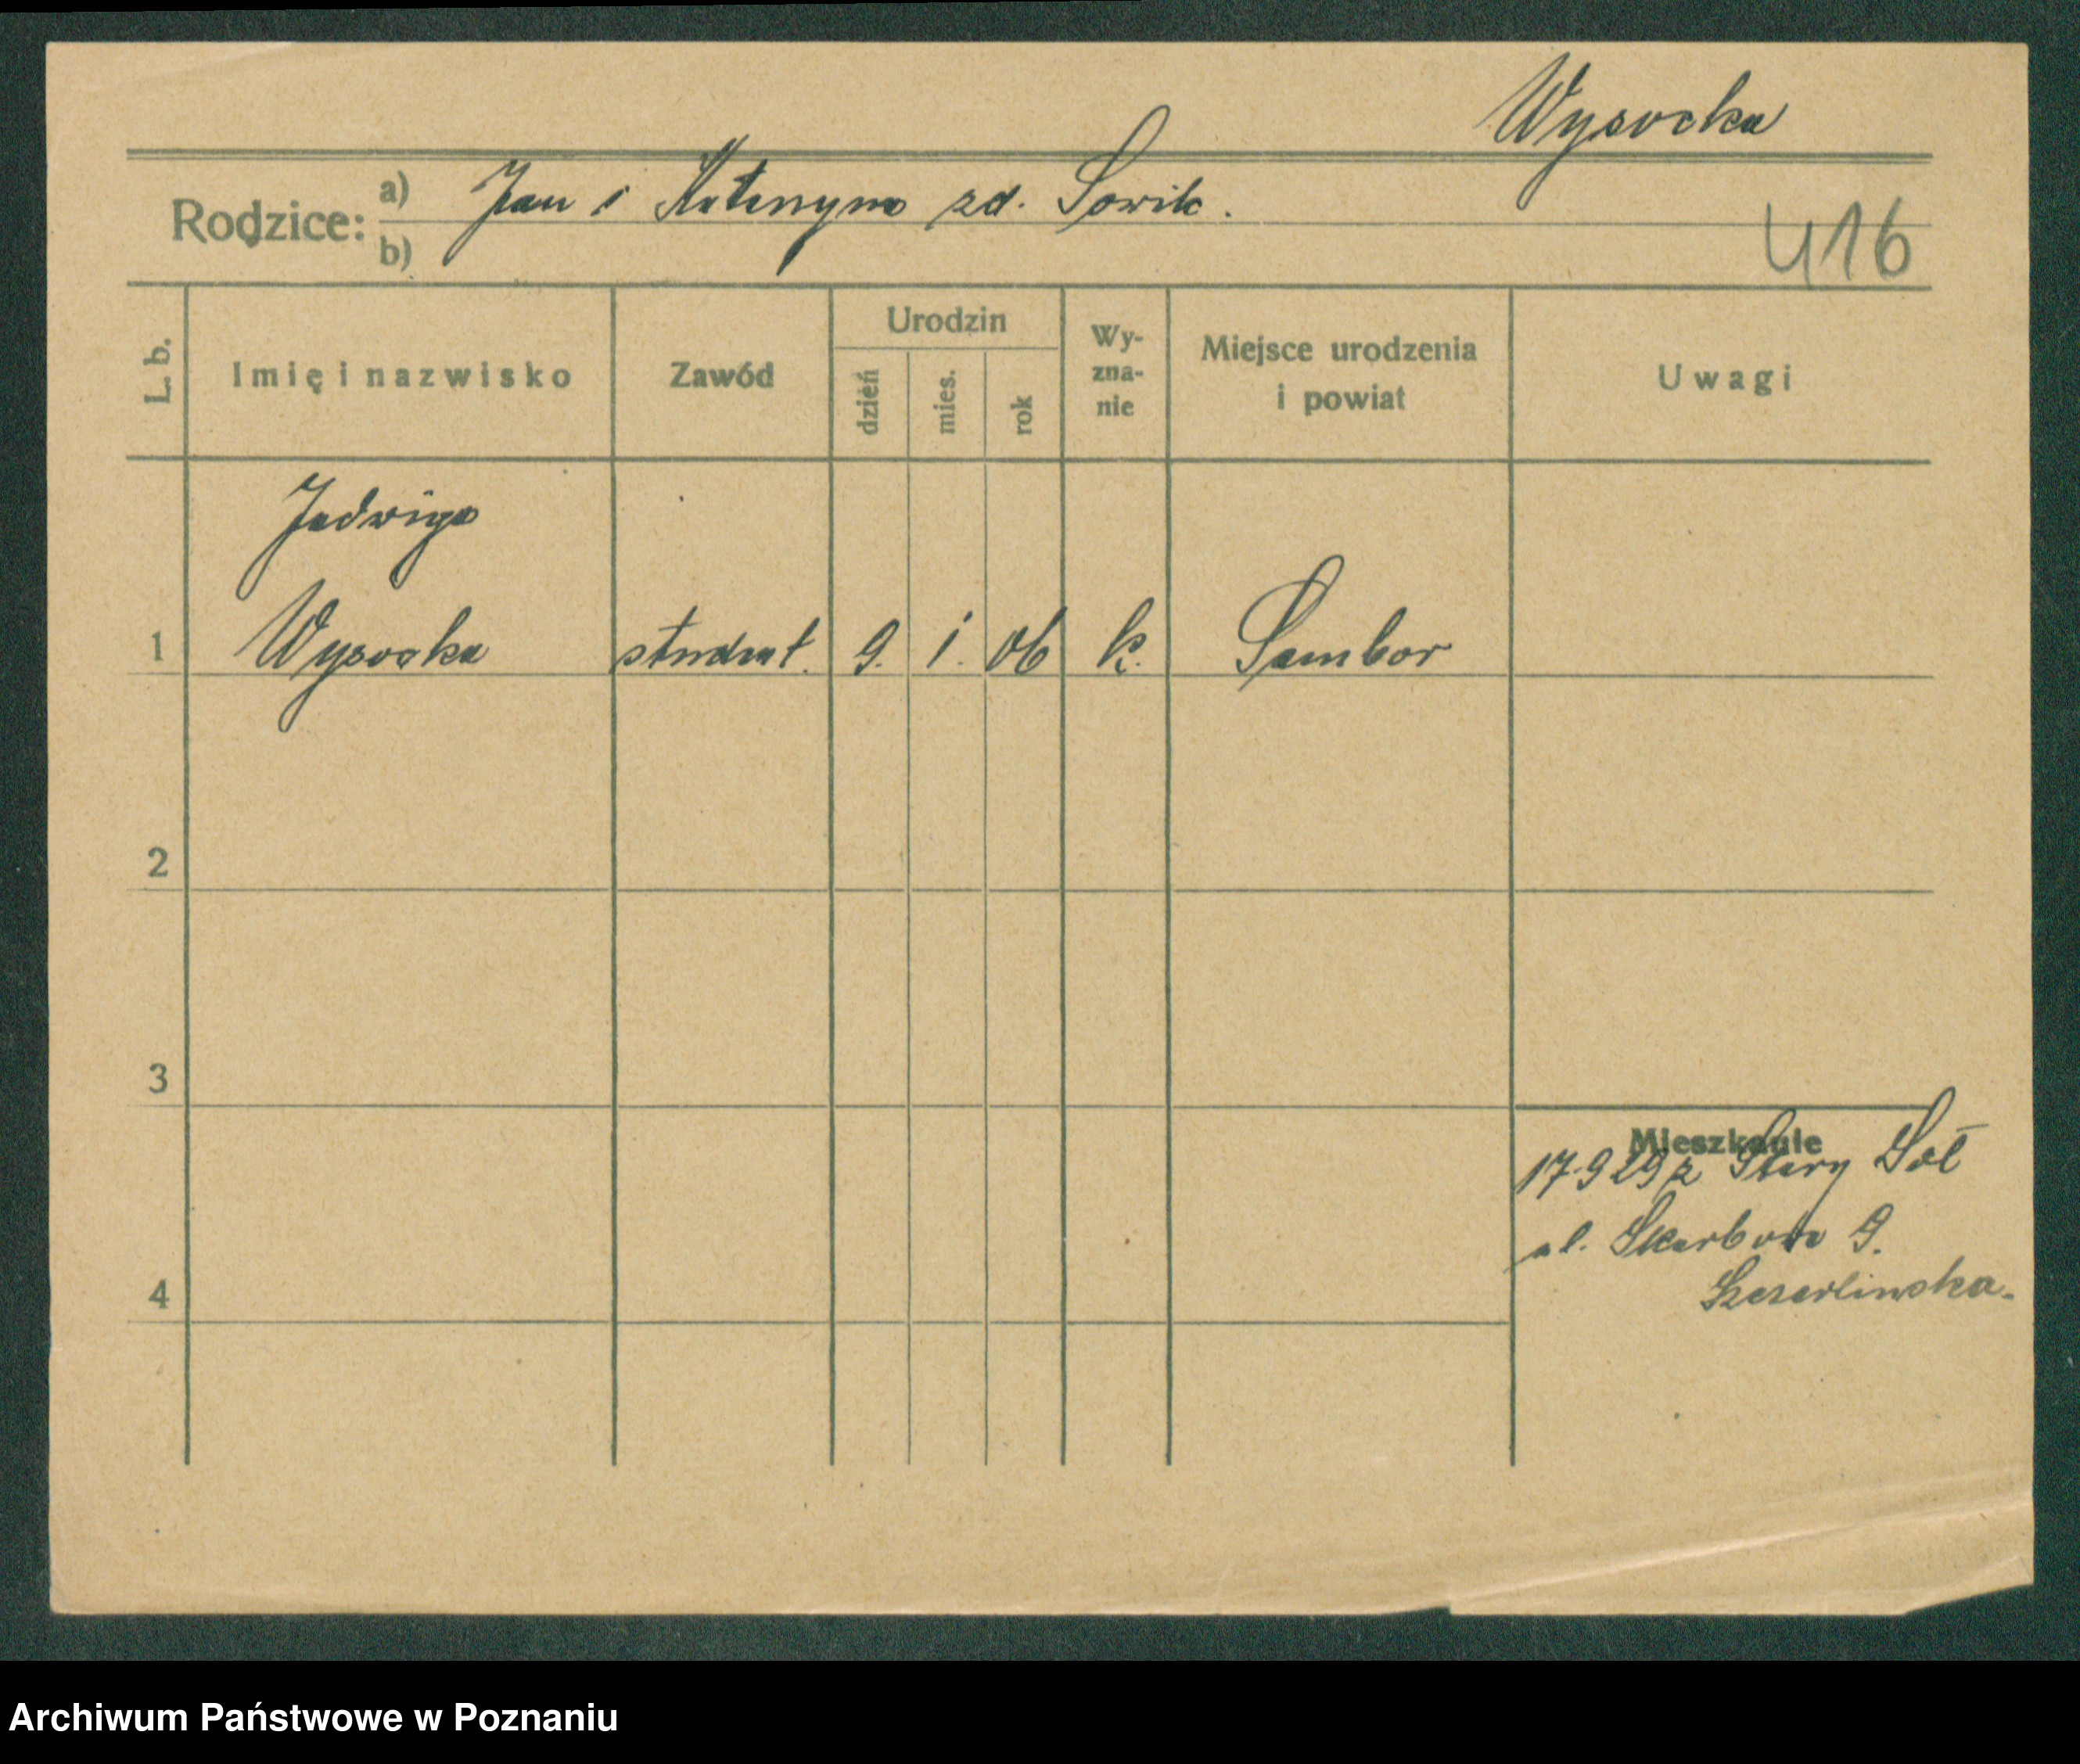 Wysocka
Rodzice: a) Jan i Katarzyna zd. Sowik.
b)
416
L. b.
Imię i nazwisko
Zawód
Urodzin
dzień
mies.
rok
Wy-
zna-
nie
Miejsce urodzenia
i powiat
Uwagi
Jadwiga
1 Wysocka student. 9. i. 06 k. Sambor
2
3
Mieszkanie
17.9 29 z Stary Sół
ul. Skarbowa 9.
4
Archiwum Państwowe w Poznaniu